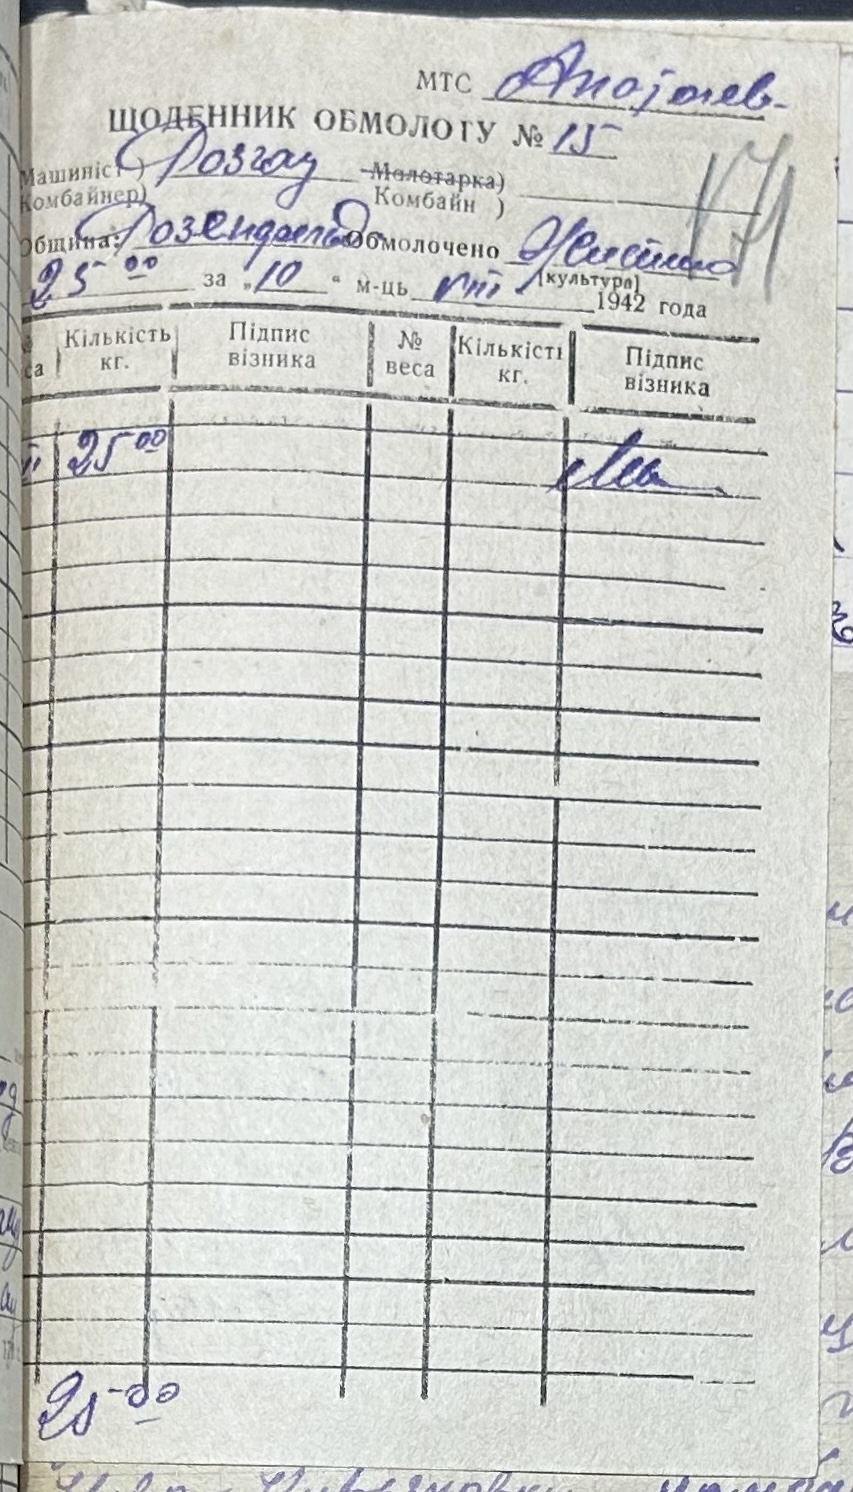 МТС
ЩОДЕННИК ОБМОЛОТУ № 15
Машиніст)
Молотарка)
171
Комбайнер)
Комбайн )
Община: Розендаль Обмолочено
(культура)
25 00 за „10“ м-ць VIII 1942 года
са
Кількість кг.
Підпис візника
№ веса
Кількість кг.
Підпис візника
II 25 00
25-00